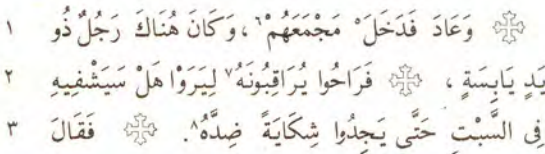 وَعَادَ فَدَخَلَ مَجْمَعَهُمْ٦، وَكَانَ هُنَاكَ رَجُلٌ ذُو ١
يَدٍ يَابِسَةٍ، فَرَاحُوا يُرَاقِبُونَهُ٧ لِيَرَوْا هَلْ سَيَشْفِيهِ ٢
فِي السَّبْتِ حَتَّى يَجِدُوا شِكَايَةً ضِدَّهُ٨. فَقَالَ ٣